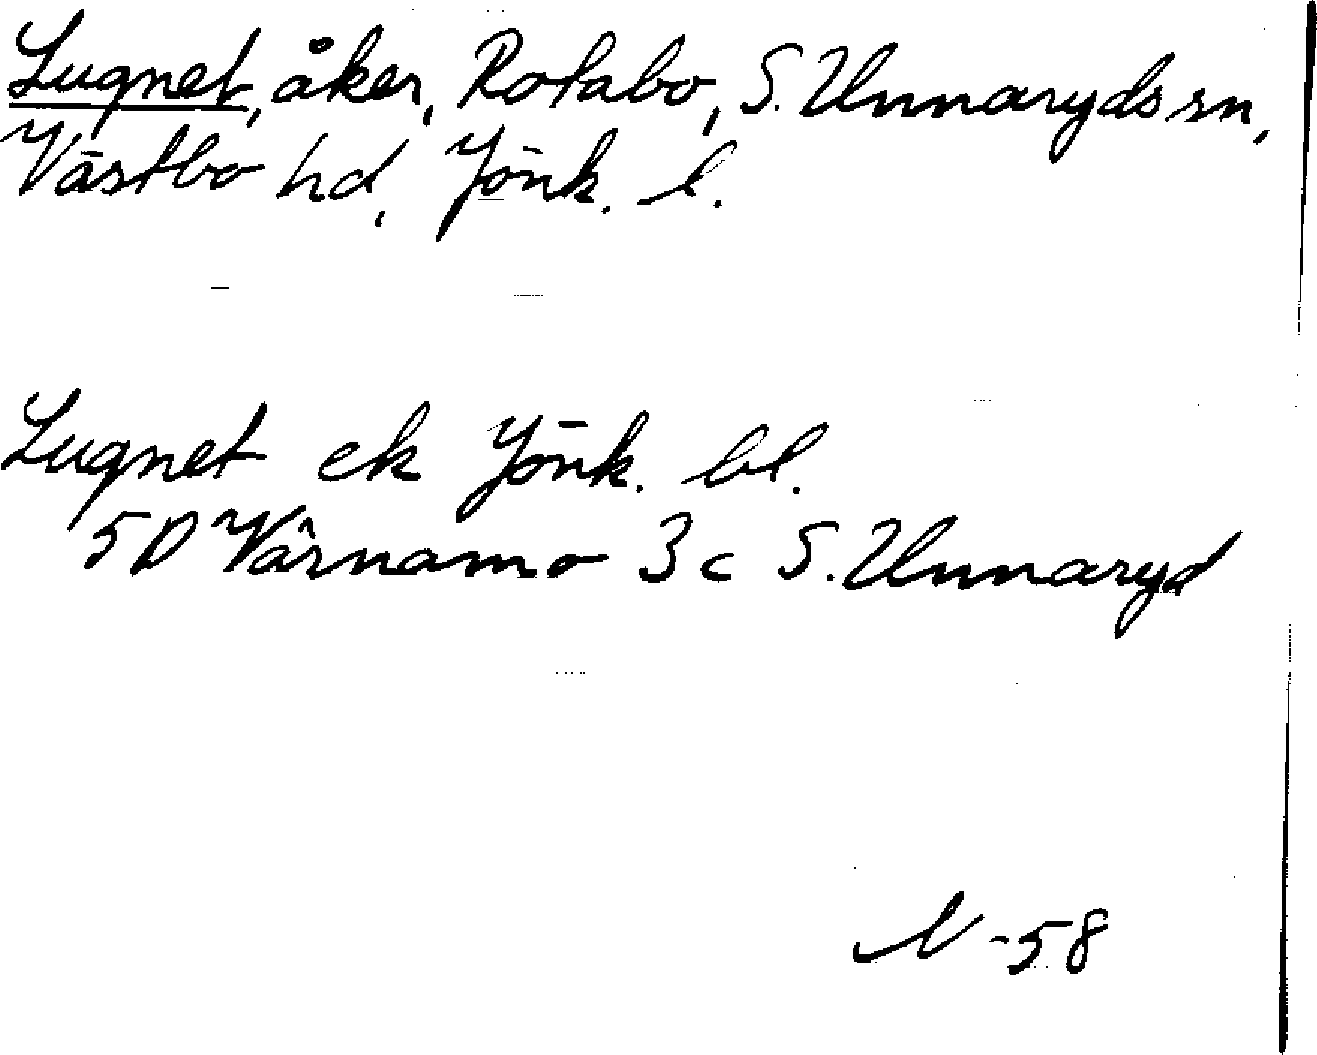 Lugnet, åker, Rotabo, S. Unnaryds sn,
Västbo hd, Jönk. l.
Lugnet ek Jönk. bl.
5D Värnamo 3c S. Unnaryd
N -58